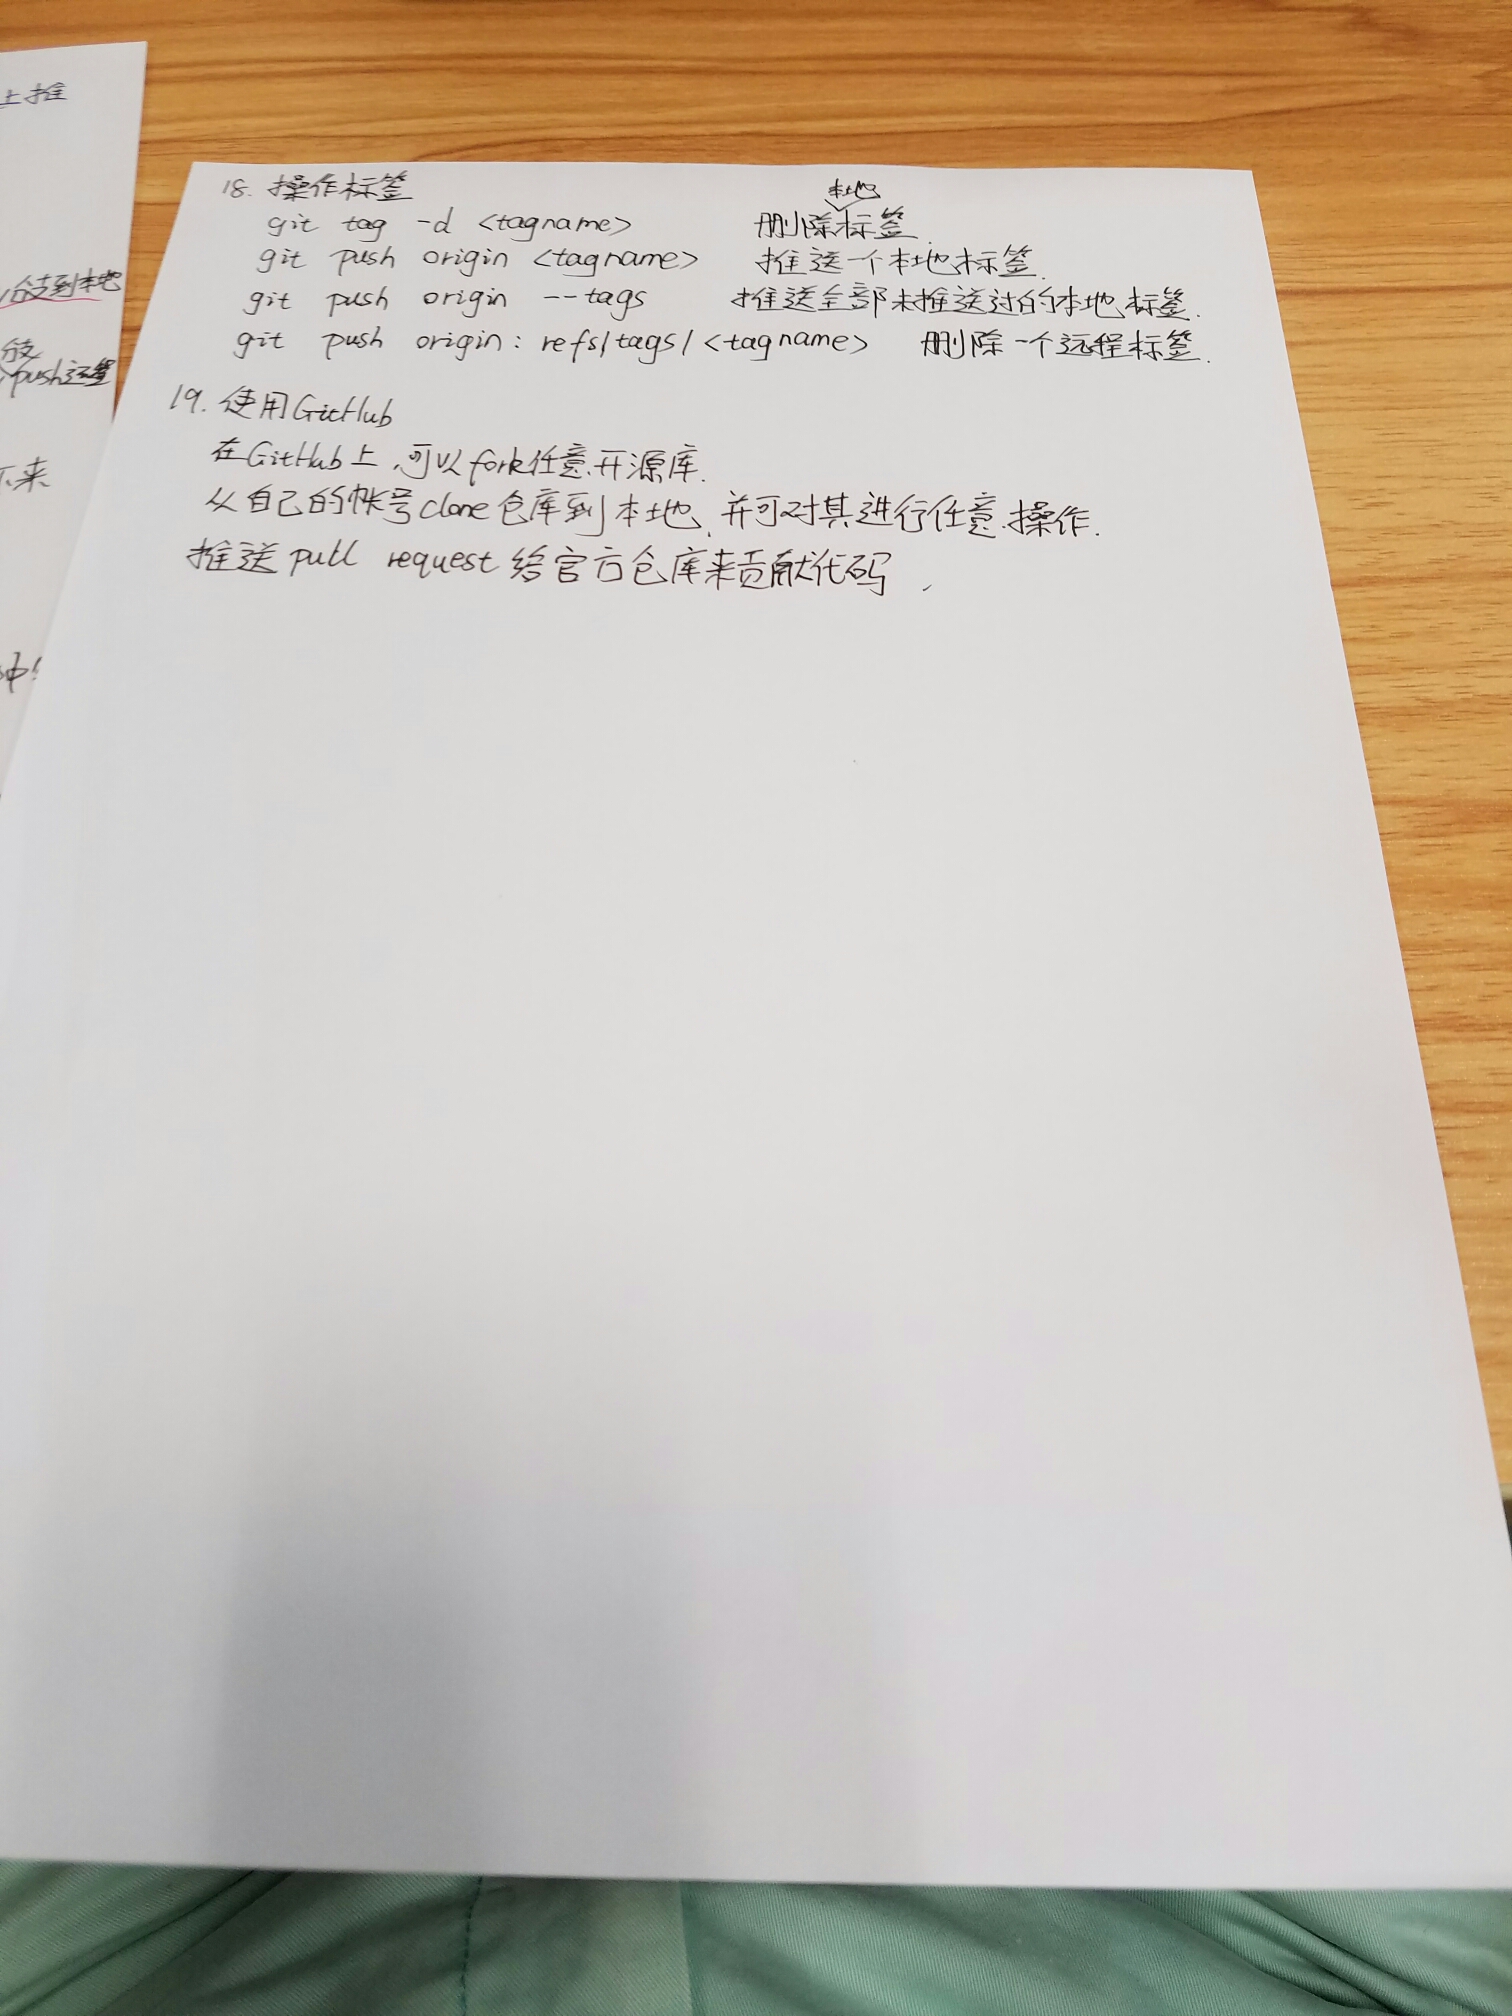 上推
分支到本地
push远
下来
18. 操作标签
git tag -d <tagname> 删除本地标签.
git push origin <tagname> 推送一个本地标签.
git push origin --tags 推送全部未推送过的本地标签.
git push origin: refs/tags/<tagname> 删除一个远程标签.
19. 使用GitHub
在GitHub上,可以fork任意开源库.
从自己的帐号clone仓库到本地,并可对其进行任意操作.
推送 pull request 给官方仓库来贡献代码.